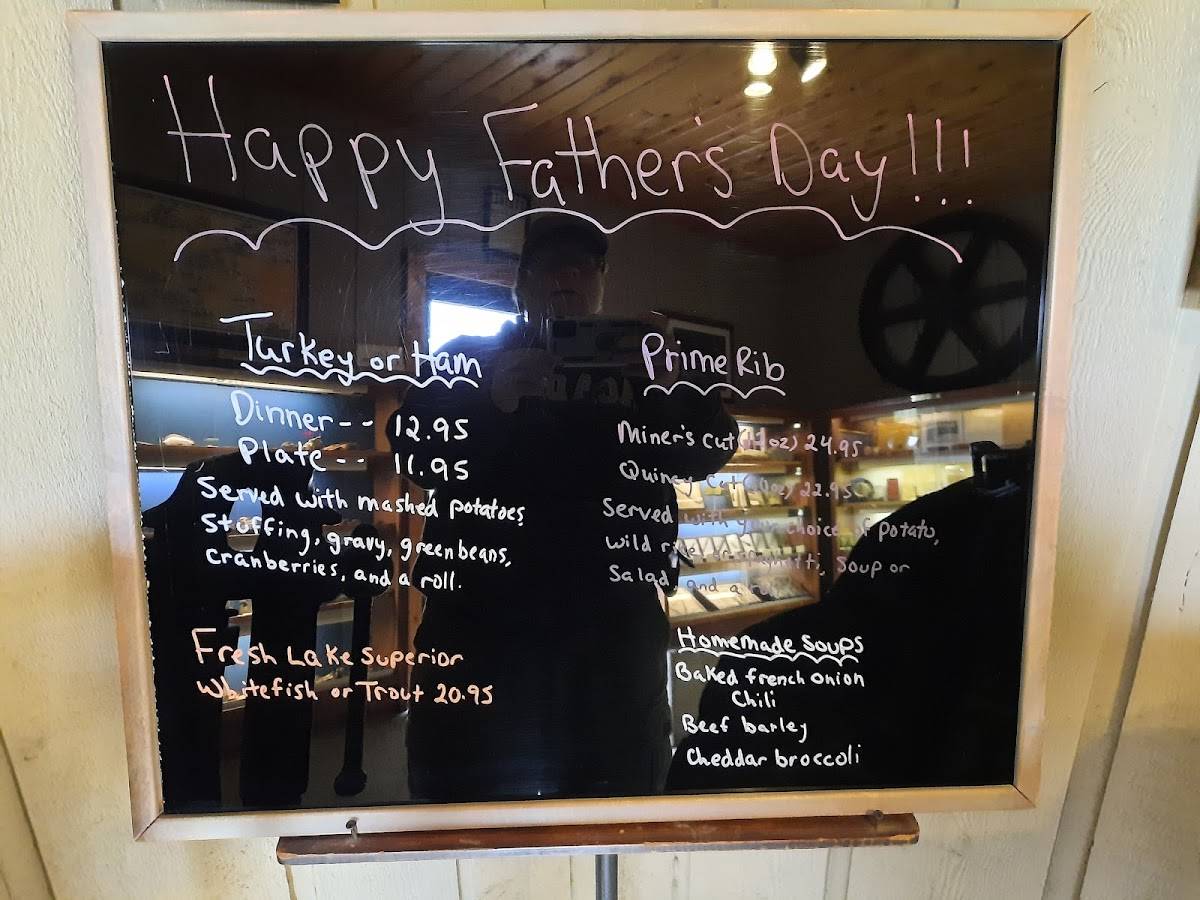 Happy Father's Day!!!
Turkey or Ham
Dinner-- 12.95
Plate-- 11.95
Served with mashed potatoes,
Stuffing, gravy, green beans,
cranberries, and a roll.
Fresh Lake Superior
Whitefish or Trout 20.95
Prime Rib
Miner's cut 24.95
Quincy cut 22.95
Served with your choice of potato,
wild rice or spaghetti, Soup or
Salad, and a roll.
Homemade Soups
Baked french onion
Chili
Beef barley
Cheddar broccoli